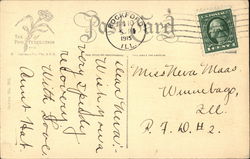 Post Card
ROCKFORD
ILL.
1915
Dear Neva:
Wish you a
very speedy
recovery
With Love
Aunt Hat
Miss Neva Maas
Winnebago,
Ill.
R.F.D.#2.